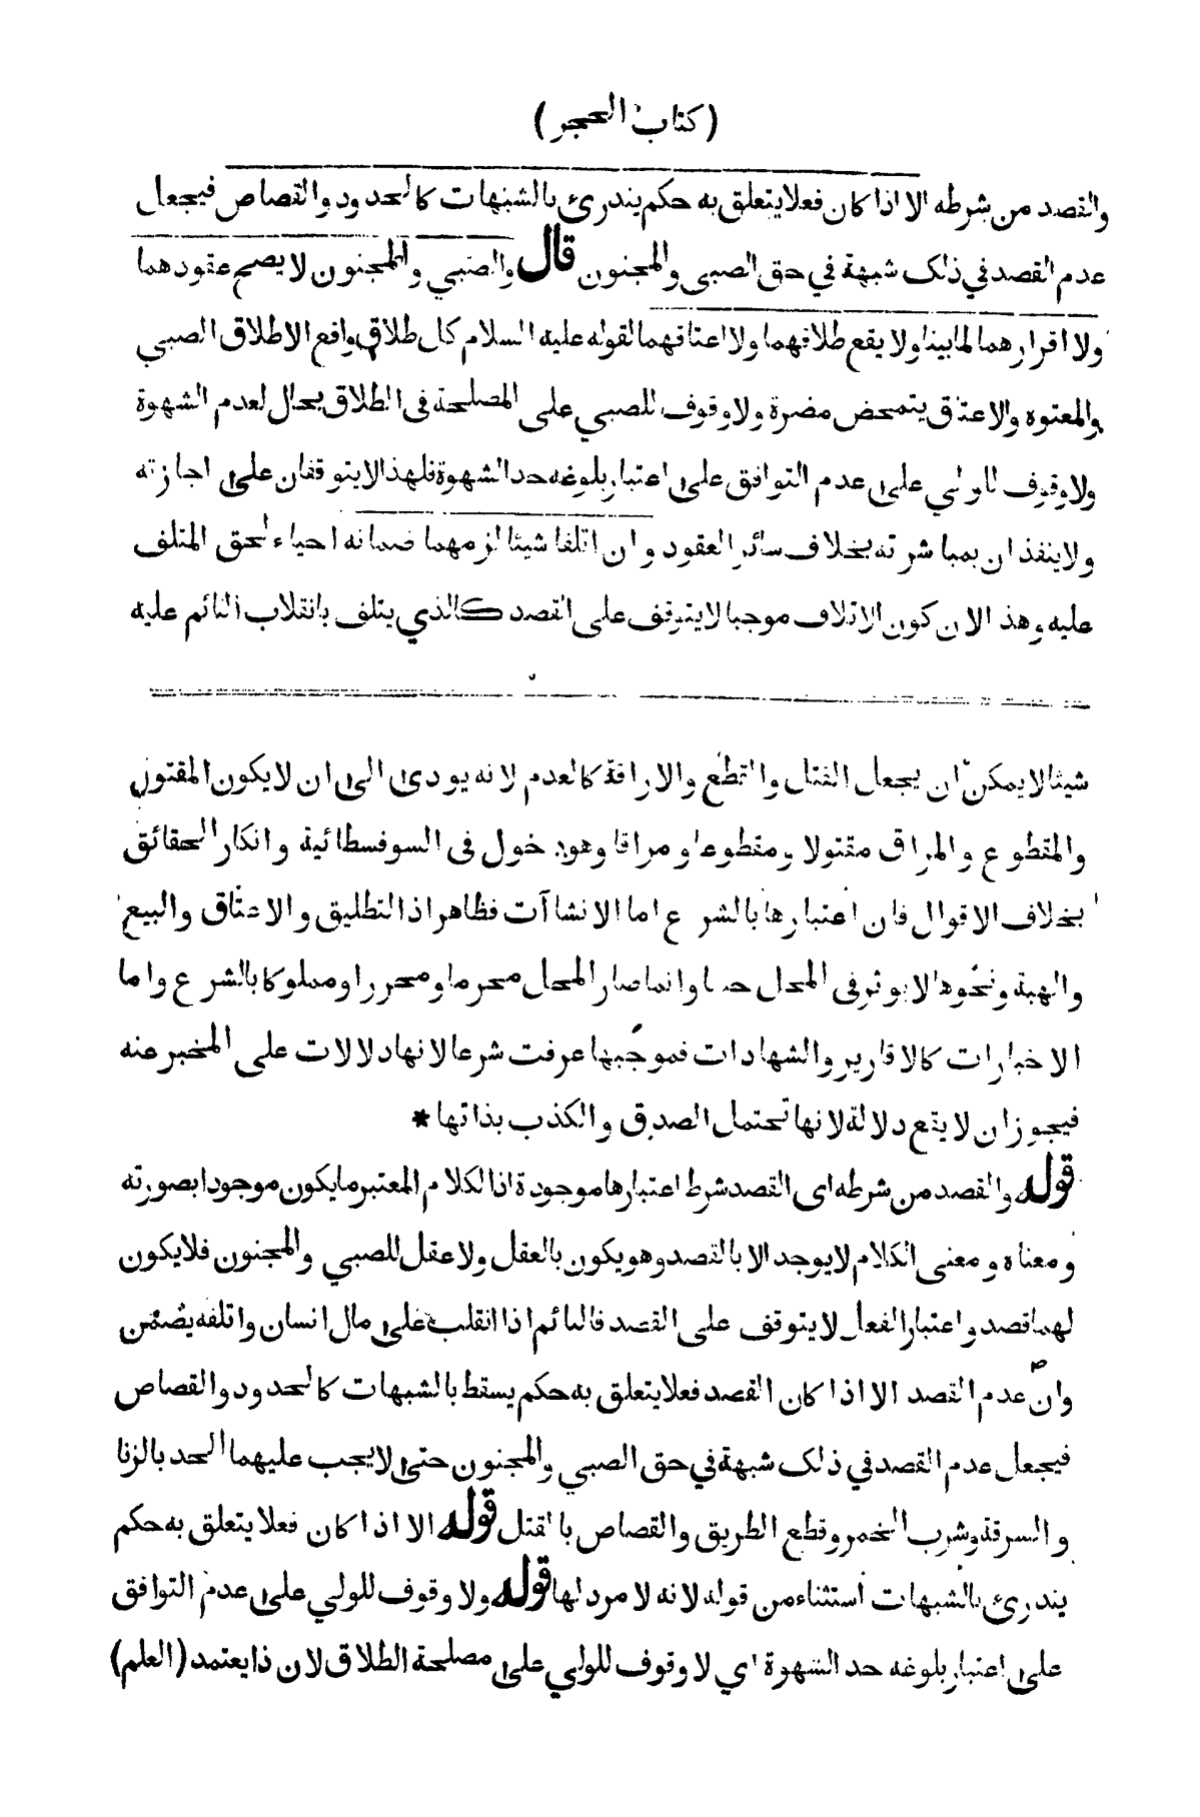 (كتاب الحجر)
والقصد من شرطه الا اذا كان فعلا يتعلق به حكم يندرئ بالشبهات كالحدود والقصاص فيجعل
عدم القصد في ذلك شبهة في حق الصبى والمجنون قال والصبي والمجنون لا يصح عقودهما
ولا اقرارهما لما بينا ولا يقع طلاقهما ولا اعتاقهما لقوله عليه السلام كل طلاق واقع الا طلاق الصبي
والمعتوه والاعتاق يتمحض مضرة ولا وقوف للصبي على المصلحة فى الطلاق بحال لعدم الشهوة
ولا وقوف للولي على عدم التوافق على اعتبار بلوغه حد الشهوة فلهذا لا يتوقفان على اجازته
ولا ينفذ ان بمباشرته بخلاف سائر العقود وان اتلفا شيئا لزمهما ضمانه احياء لحق المتلف
عليه وهذا لان كون الاتلاف موجبا لا يتوقف على القصد كالذي يتلف بانقلاب النائم عليه
شيئا لا يمكن ان يجعل القتل والقطع والاراقة كالعدم لانه يودى الى ان لا يكون المقتول
والمقطوع والمراق مقتولا ومقطوعا ومراقا وهو دخول فى السوفسطائية وانكار الحقائق
بخلاف الاقوال فان اعتبارها بالشرع اما الانشاآت فظاهر اذا التطليق والاعتاق والبيع
والهبة ونحوها لا يوثر فى المحل حسا وانما صار المحل محرما ومحررا ومملوكا بالشرع واما
الاخبارات كالاقارير والشهادات فموجبها عرفت شرعا لانها دلالات على المخبر عنه
فيجوز ان لا يقع دلالة لانها تحتمل الصدق والكذب بذاتها *
قوله والقصد من شرطه اى القصد شرط اعتبارها موجودة اذا لكلام المعتبر ما يكون موجودا بصورته
ومعناه ومعنى الكلام لا يوجد الا بالقصد وهو يكون بالعقل ولا عقل للصبي والمجنون فلا يكون
لهما قصد واعتبار الفعل لا يتوقف على القصد فالنائم اذا انقلب على مال انسان واتلفه يضمن
وان عدم القصد الا اذا كان القصد فعلا يتعلق به حكم يسقط بالشبهات كالحدود والقصاص
فيجعل عدم القصد في ذلك شبهة في حق الصبي والمجنون حتى لا يجب عليهما الحد بالزنا
والسرقة وشرب الخمر وقطع الطريق والقصاص بالقتل قوله الا اذا كان فعلا يتعلق به حكم
يندرئ بالشبهات استثناء من قوله لانه لا مرد لها قوله ولا وقوف للولي على عدم التوافق
على اعتبار بلوغه حد الشهوة اي لا وقوف للولي على مصلحة الطلاق لان ذا يعتمد (العلم)